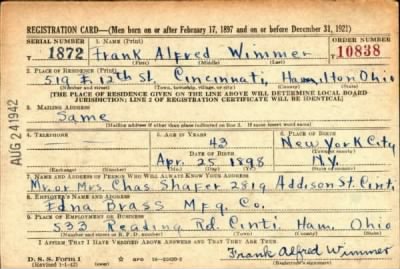 REGISTRATION CARD—(Men born on or after February 17, 1897 and on or before December 31, 1921)
SERIAL NUMBER 1. NAME (Print) ORDER NUMBER
T 1872 Frank Alfred Wimmer T 10838
(First) (Middle) (Last)
2. PLACE OF RESIDENCE (Print)
519 E. 12th St. Cincinnati, Hamilton Ohio
(Number and street) (Town, township, village, or city) (County) (State)
[THE PLACE OF RESIDENCE GIVEN ON THE LINE ABOVE WILL DETERMINE LOCAL BOARD
JURISDICTION; LINE 2 OF REGISTRATION CERTIFICATE WILL BE IDENTICAL]
3. MAILING ADDRESS
Same
[Mailing address if other than place indicated on line 2. If same insert word same]
4. TELEPHONE 5. AGE IN YEARS 6. PLACE OF BIRTH
43 New York City
DATE OF BIRTH (Town or county)
Apr. 25 1898 N.Y.
(Exchange) (Number) (Mo.) (Day) (Yr.) (State or country)
7. NAME AND ADDRESS OF PERSON WHO WILL ALWAYS KNOW YOUR ADDRESS
Mr. or Mrs. Chas. Shafer 2819 Addison St. Cinti
8. EMPLOYER'S NAME AND ADDRESS
Edna Brass Mfg. Co.
9. PLACE OF EMPLOYMENT OR BUSINESS
533 Reading Rd. Cinti. Ham. Ohio
(Number and street or R. F. D. number) (Town) (County) (State)
I AFFIRM THAT I HAVE VERIFIED ABOVE ANSWERS AND THAT THEY ARE TRUE.
Frank Alfred Wimmer
D. S. S. Form 1
(Revised 1-1-42) (over) GPO
(Registrant's signature)
AUG 24 1942